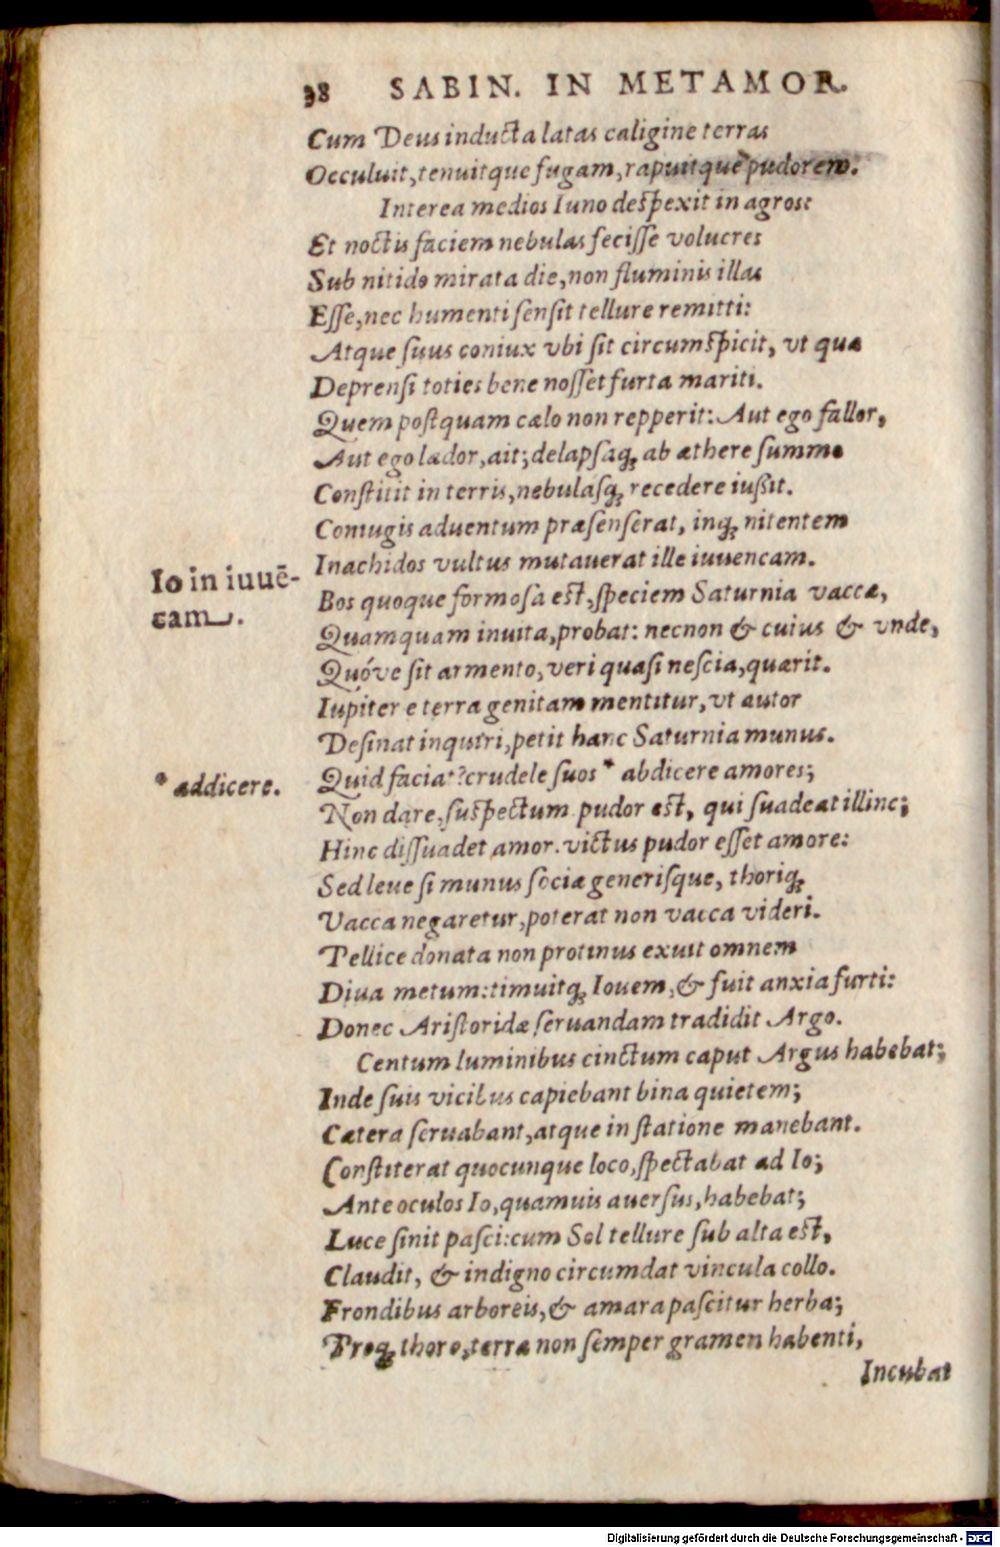 38 SABIN. IN METAMOR.
Cum Deus inducta latas caligine terras
Occuluit, tenuitque fugam, rapuitque pudorem.
Interea medios Iuno despexit in agros:
Et noctis faciem nebulas fecisse volucres
Sub nitido mirata die, non fluminis illas
Esse, nec humenti sensit tellure remitti:
Atque suus coniux vbi sit circumspicit, vt quæ
Deprensi toties bene nosset furta mariti.
Quem postquam cælo non repperit: Aut ego fallor,
Aut ego lædor, ait; delapsaq; ab æthere summo
Constitit in terris, nebulasq; recedere iußit.
Coniugis aduentum præsenserat, inq; nitentem
Inachidos vultus mutauerat ille iuuencam.
Io in iuuē-
cam.
Bos quoque formosa est, speciem Saturnia vaccæ,
Quamquam inuita, probat: necnon & cuius & vnde,
Quóve sit armento, veri quasi nescia, quærit.
Iupiter e terra genitam mentitur, vt autor
Desinat inquiri, petit hanc Saturnia munus.
Quid faciat? crudele suos * abdicere amores;
* addicere.
Non dare, suspectum pudor est, qui suadeat illinc;
Hinc dissuadet amor. victus pudor esset amore:
Sed leue si munus sociæ generisque, thoriq;
Vacca negaretur, poterat non vacca videri.
Pellice donata non protinus exuit omnem
Diua metum: timuitq; Iouem, & fuit anxia furti:
Donec Aristoridæ seruandam tradidit Argo.
Centum luminibus cinctum caput Argus habebat;
Inde suis vicibus capiebant bina quietem;
Cætera seruabant, atque in statione manebant.
Constiterat quocunque loco, spectabat ad Io;
Ante oculos Io, quamuis auersus, habebat;
Luce sinit pasci: cum Sol tellure sub alta est,
Claudit, & indigno circumdat vincula collo.
Frondibus arboreis, & amara pascitur herba;
Proq; thoro, terræ non semper gramen habenti,
Incubat
Digitalisierung gefördert durch die Deutsche Forschungsgemeinschaft - DFG